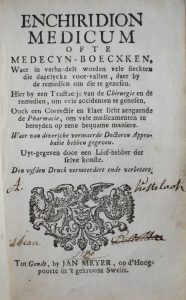 ENCHIRIDION
MEDICUM
OFTE
MEDECYN-BOECXKEN,
Waer in verhandelt worden vele sieckten
die dagelyckx voor-vallen, daer by
de remedien om die te genesen.
Hier by een Tractaetje van de Chirurgie en de
remedien, om vele accidenten te genesen.
Oock een Correctie en klaer licht aengaende
de Pharmacie, om vele medicamenten te
bereyden op eene bequame maniere.
Waer van diversche vermaerde Doctoren Approbatie
hebben gegeven.
Uyt-gegeven door een Lief-hebber der
selve konste.
Den vyfden Druck vermeerdert ende verbetert.
A.
Tot Gendt, by JAN MEYER, op d'Hoog-
poorte in 't gekroont Sweirt.